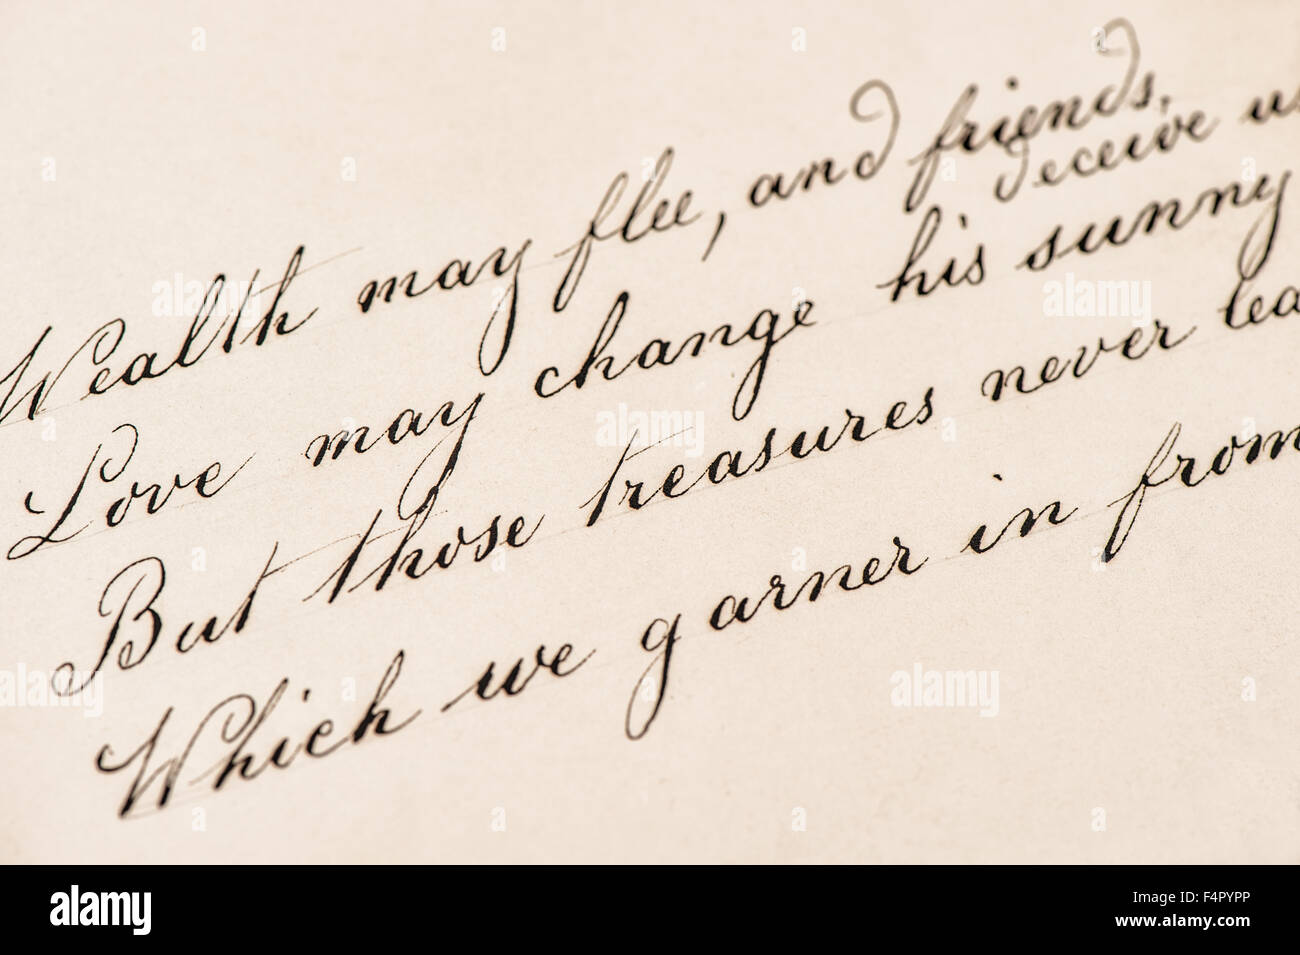 Wealth may flee, and friends,
deceive us
Love may change his sunny
But those treasures never lea
Which we garner in from
alamy
alamy
Image ID: F4RYPP
www.alamy.com